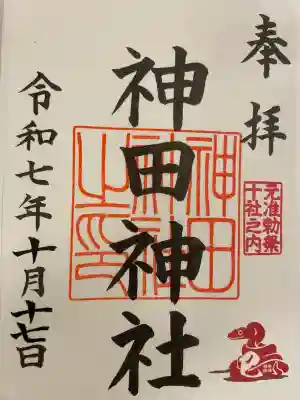 奉拝
元准勅祭
十社之内
神田神社
神田
神社
之印
令和七年十月十七日